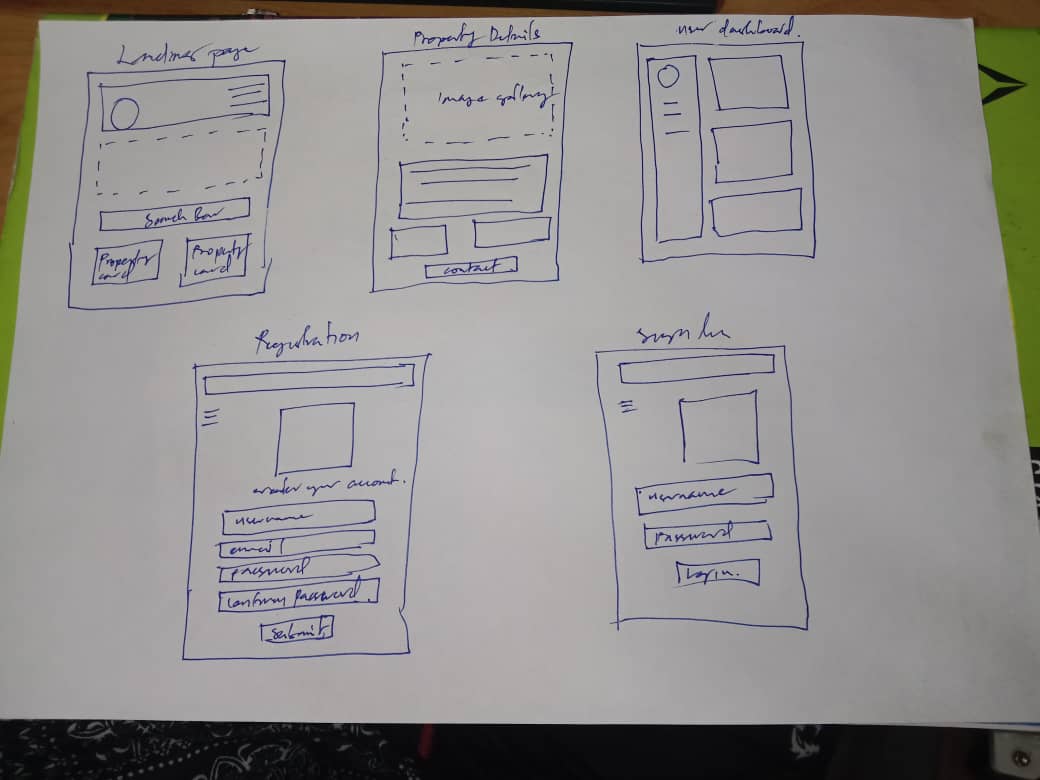 Landing page
Search Bar
Property
card
Property
card
Property Details
Image gallery
contact
user dashboard.
Registration
create your account.
username
email
password
confirm password.
Submit
Sign In
username
password
Login.